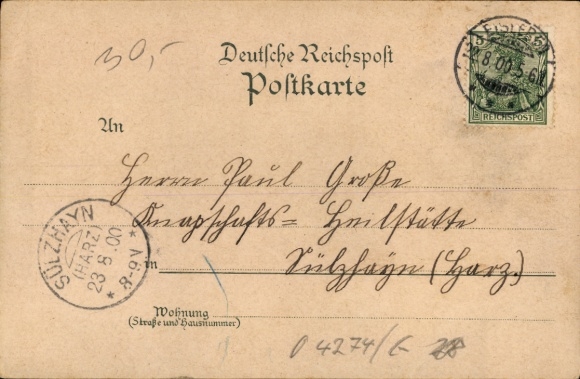 30,-
Deutsche Reichspost
Postkarte
EISLEBEN
8.00.5-6N
REICHSPOST
An
Herrn Paul Große
Knapschafts= Heilstätte
in Sülzhayn (Harz).
SÜLZHAYN
(HARZ)
23 8.00
* 8-9V *
Wohnung
(Straße und Hausnummer)
04274/G